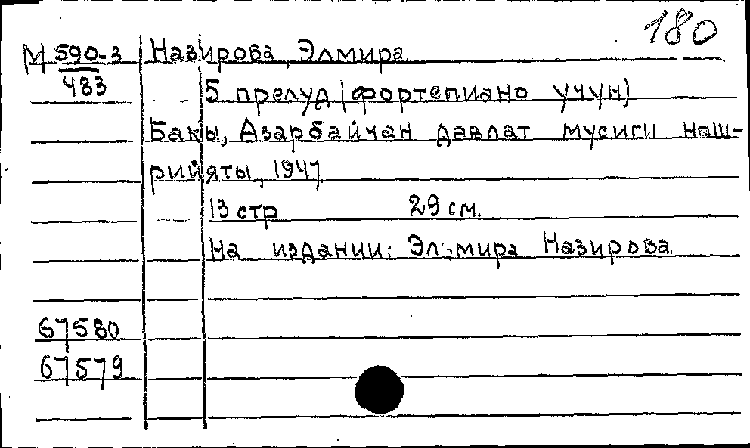 180
М 590-3 Назирова, Элмира
483
5 прелуд (фортепиано учун)
Бакы, Азарбайчан давлат мусиги наш-
рийяты, 1947
13 стр 29 см.
На издании: Эльмира Назирова
67580
67579